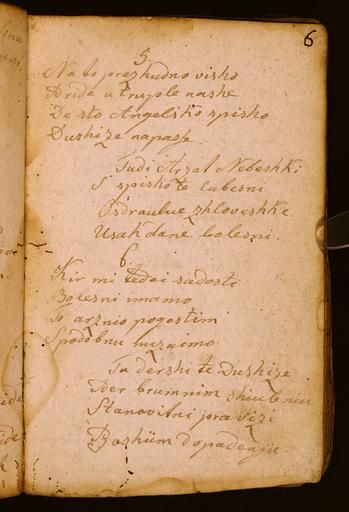 6
5.
Na bo prezhudno visho
Pride u truple nashe
De sto Angelsko spisho
Dushize napasse
Tudi Arzat Nebeshki
S' spisho te lubesni
Osdraulue zhloveshke
Usak dane bolesni.
6
Kir mi tedai sadosti
Bolesni imamo
To arznio pogostim
Spodobnu nuzaimo
Ta dershi te Dushize
Per brumnim shiulenu
Stanovitni pravizi
Boshiim dopadenju.